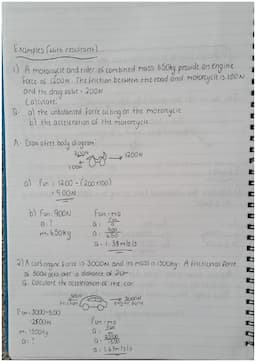 Examples (with resultant)
1) A motorcycle and rider of combined mass 650kg provide an engine
force of 1200N. The friction between the road and motorcycle is 100N
and the drag value = 200N
Calculate:
Q: a) the unbalanced force acting on the motorcycle
b) the acceleration of the motorcycle
A: Draw a free body diagram
200N
1200N
100N
a) Fun = 1200 - (200+100)
= 900N
b) Fun: 900N Fun = ma
a: ? a: Fun/m
m: 650kg a: 900/650
a: 1.38m/s/s
2) A car's engine force is 3000N and its mass is 1500kg. A frictional force
of 500N acts over a distance of
Q: Calculate the acceleration of the car.
500N
friction
3000N
engine force
Fun = 3000-500
= 2500N Fun = ma
m: 1500kg a: Fun/m
a: ? a: 2500/1500
a: 1.67m/s/s